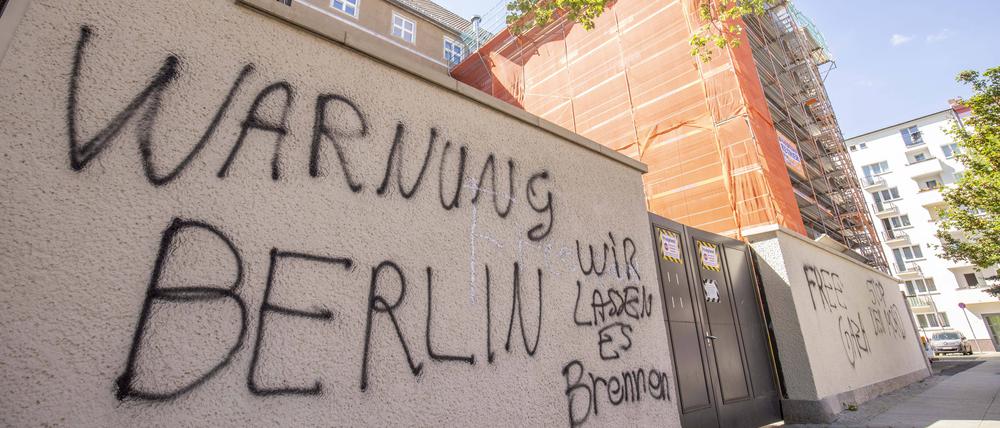 WARNUNG
BERLIN
WIR
LASSEN
ES
Brennen
FREE
STOP